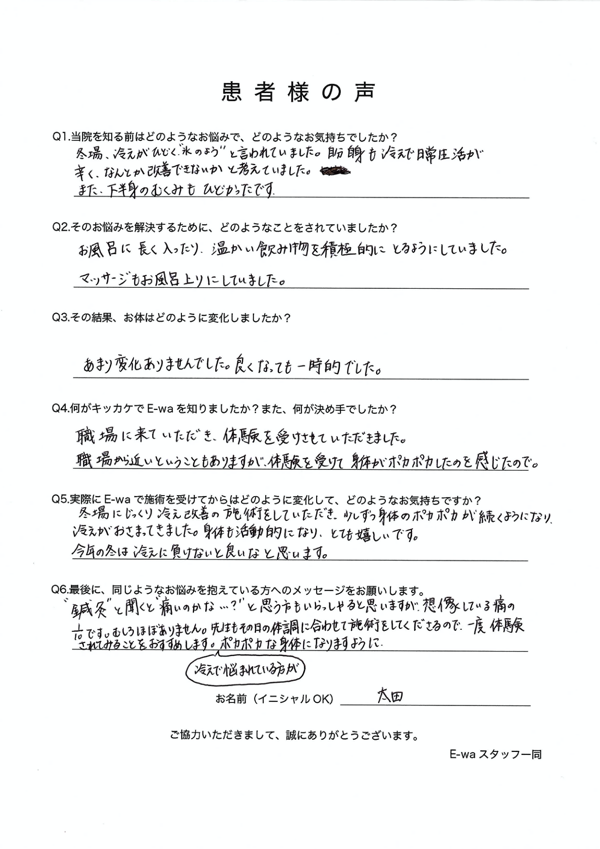 患者様の声
Q1.当院を知る前はどのようなお悩みで、どのようなお気持ちでしたか？
冬場、冷えがひどく、"氷のよう"と言われていました。自分自身も冷えで日常生活が
辛く、なんとか改善できないかと考えていました。
また、下半身のむくみもひどかったです。
Q2.そのお悩みを解決するために、どのようなことをされていましたか？
お風呂に長く入ったり、温かい飲み物を積極的にとるようにしていました。
マッサージもお風呂上りにしていました。
Q3.その結果、お体はどのように変化しましたか？
あまり変化ありませんでした。良くなっても一時的でした。
Q4.何がキッカケでE-waを知りましたか？また、何が決め手でしたか？
職場に来ていただき、体験を受けさせていただきました。
職場から近いということもありますが、体験を受けて身体がポカポカしたのを感じたので。
Q5.実際にE-waで施術を受けてからはどのように変化して、どのようなお気持ちですか？
冬場にじっくり冷え改善の施術をしていただき、少しずつ身体のポカポカが続くようになり、
冷えがおさまってきました。身体も活動的になり、とても嬉しいです。
今年の冬は冷えに負けないと良いなと思います。
Q6.最後に、同じようなお悩みを抱えている方へのメッセージをお願いします。
"鍼灸"と聞くと"痛いのかな…?"と思う方もいらっしゃると思いますが、想像している痛の
1/10です。むしろほぼありません。先生もその日の体調に合わせて施術をしてくださるので、一度体験
されてみることをおすすめします。ポカポカな身体になりますように。
冷えで悩まれている方が
お名前（イニシャルOK） 太田
ご協力いただきまして、誠にありがとうございます。
E-waスタッフ一同